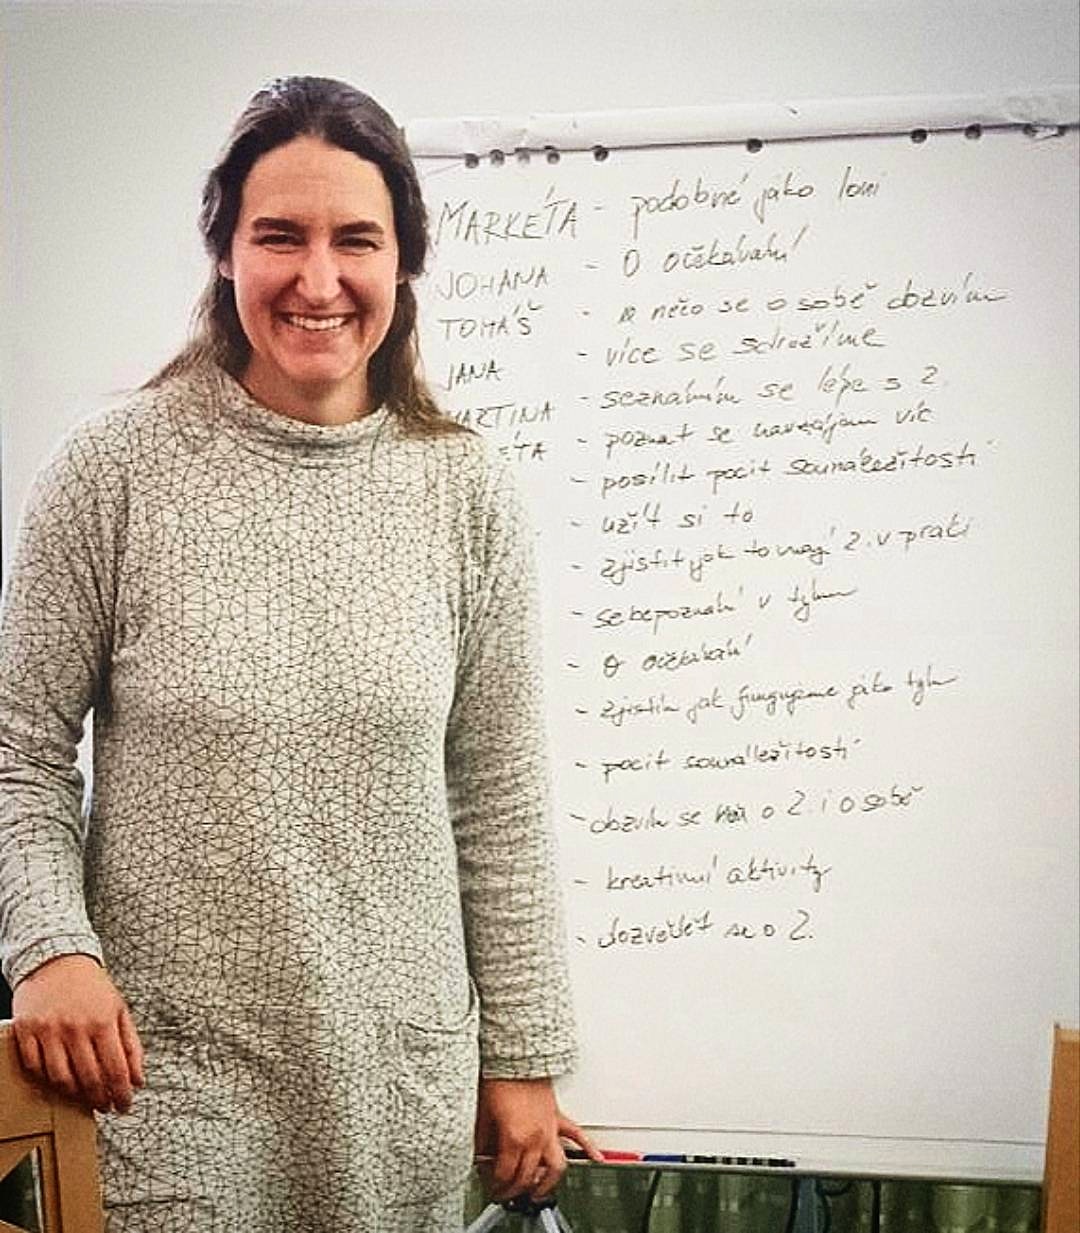 MARKÉTA - podobně jako loni
JOHANA - O očekávání
TOMÁŠ - něco se o sobě dozvím
JANA - více se sdružíme
MARTINA - seznámím se lépe s 2.
ÉTA - poznat se navzájem víc
- posílit pocit sounáležitosti
- užít si to
- zjistit jak to mají 2. v práci
- sebepoznání v týmu
- O očekávání
- zjistím jak fungujeme jako tým
- pocit sounáležitosti
- dozvím se o 2. i o sobě
- kreativní aktivity
- dozvědět se o 2.